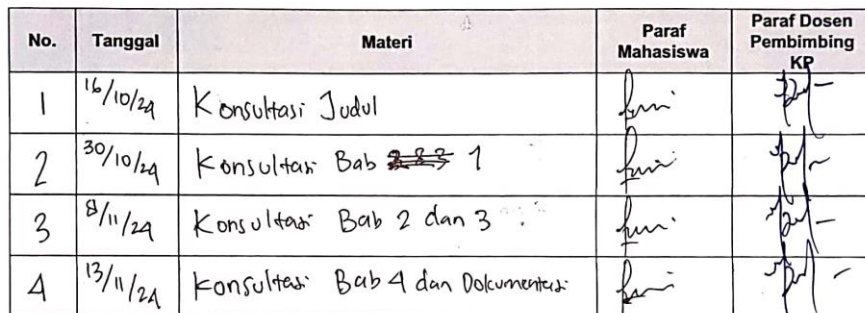 No. Tanggal Materi Paraf Mahasiswa Paraf Dosen Pembimbing KP
1 16/10/24 Konsultasi Judul
2 30/10/24 Konsultasi Bab 1
3 8/11/24 Konsultasi Bab 2 dan 3
4 13/11/24 Konsultasi Bab 4 dan Dokumentasi